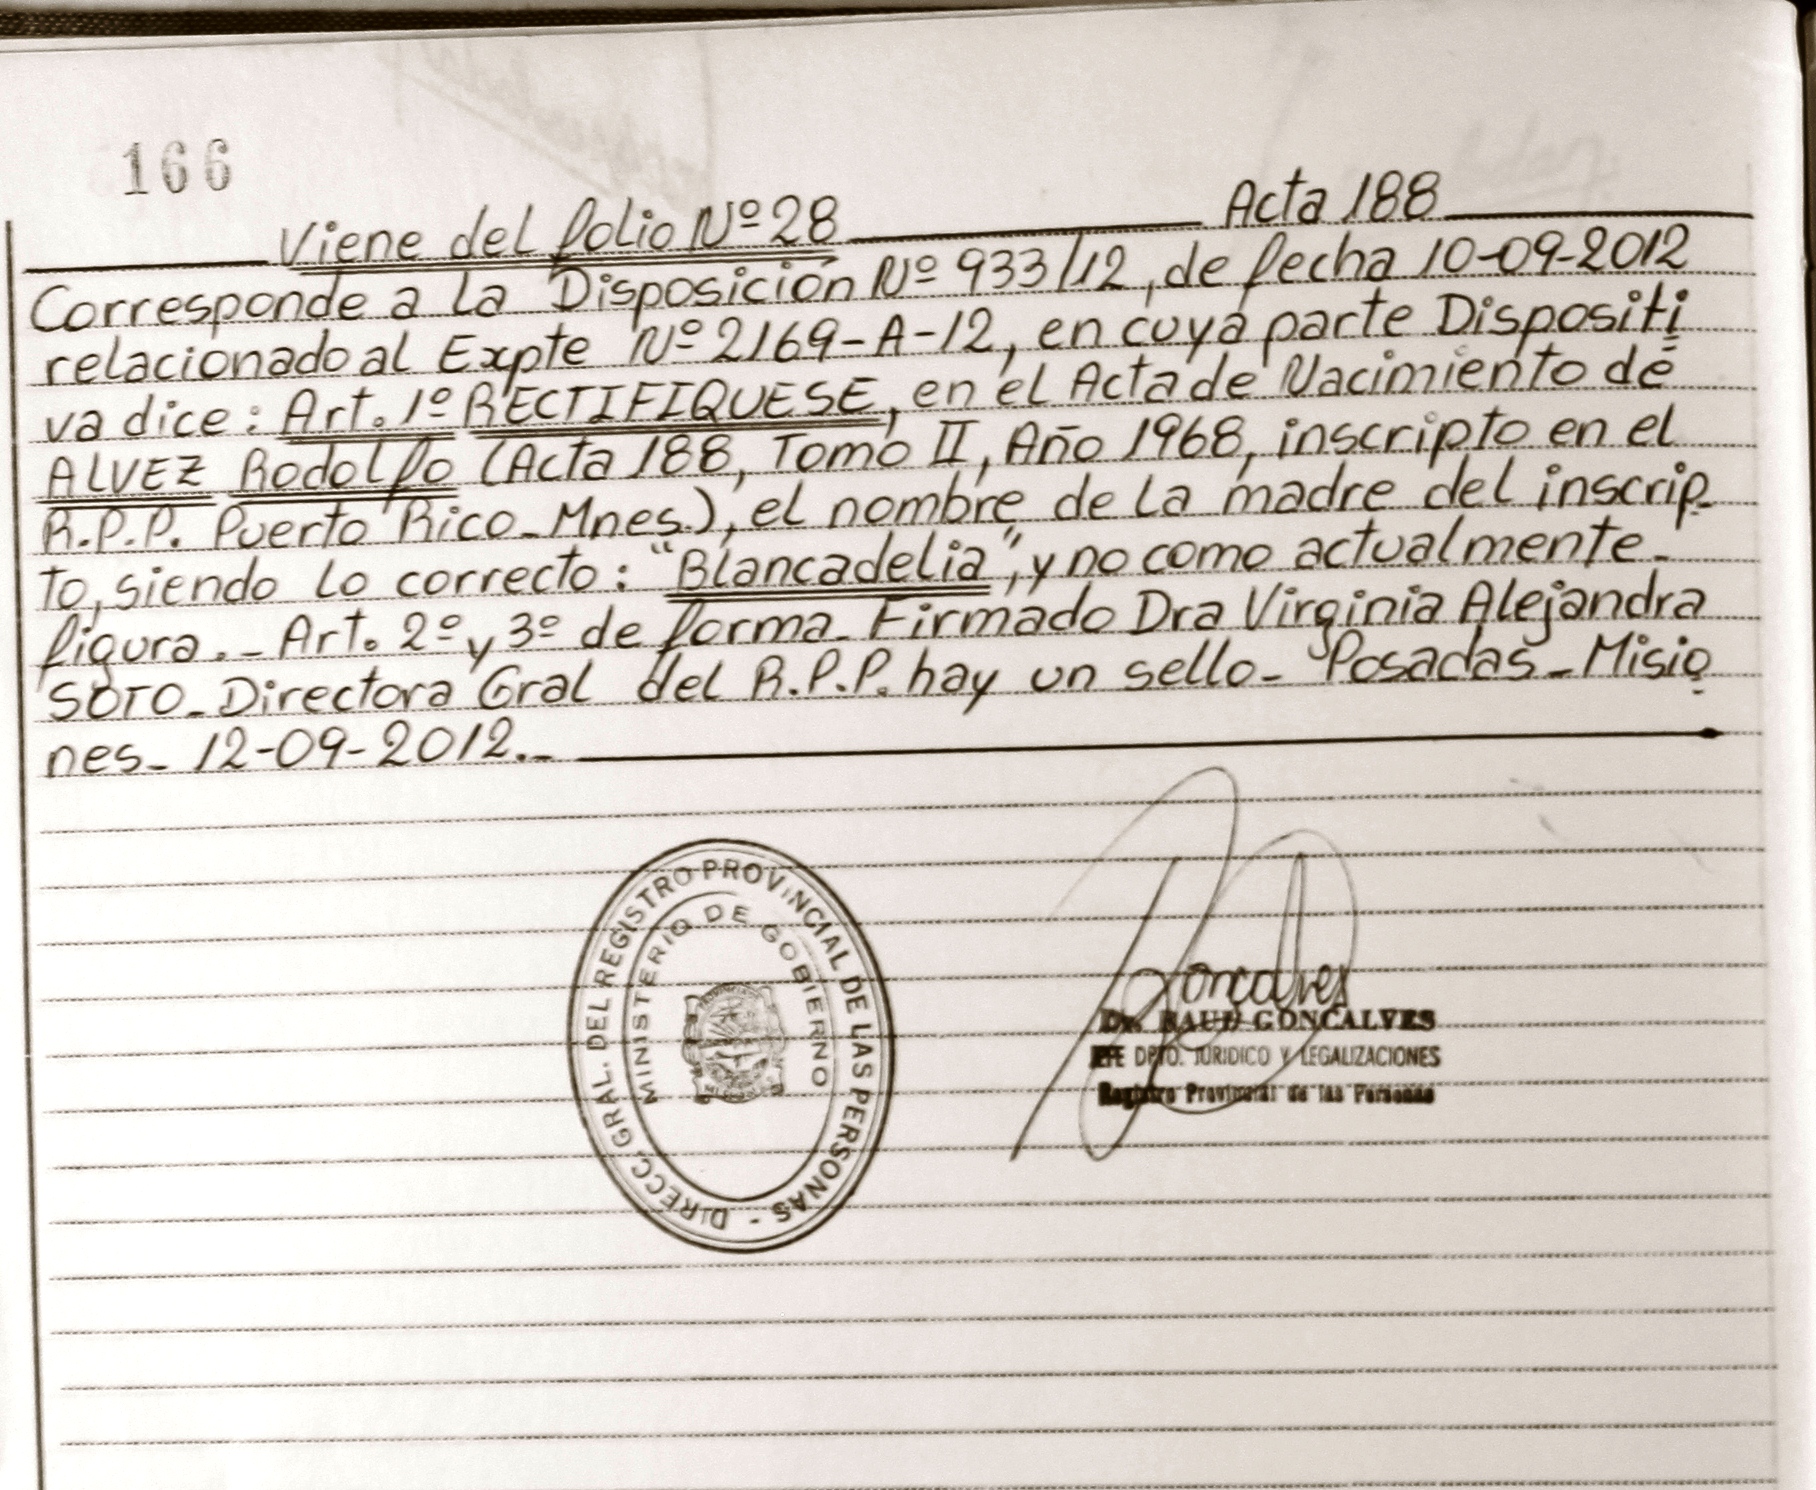 166
Viene del folio Nº 28 Acta 188
Corresponde a la Disposición Nº 933/12, de fecha 10-09-2012
relacionado al Expte Nº 2169-A-12, en cuya parte Dispositi
va dice: Art. 1º RECTIFIQUESE, en el Acta de Nacimiento de
ALVEZ Rodolfo (Acta 188, Tomo II, Año 1968, inscripto en el
R.P.P. Puerto Rico_Mnes.), el nombre de la madre del inscrip_
to, siendo lo correcto: "Blancadelia", y no como actualmente_
figura._ Art. 2º y 3º de forma_ Firmado Dra Virginia Alejandra
SOTO_Directora Gral del R.P.P. hay un sello_ Posadas_Misio
nes_ 12-09-2012._
DIRECC. GRAL. DEL REGISTRO PROVINCIAL DE LAS PERSONAS -
MINISTERIO DE GOBIERNO
Goncalves
Dr. RAUL GONCALVES
JEFE DPTO. JURIDICO Y LEGALIZACIONES
Registro Provincial de las Personas